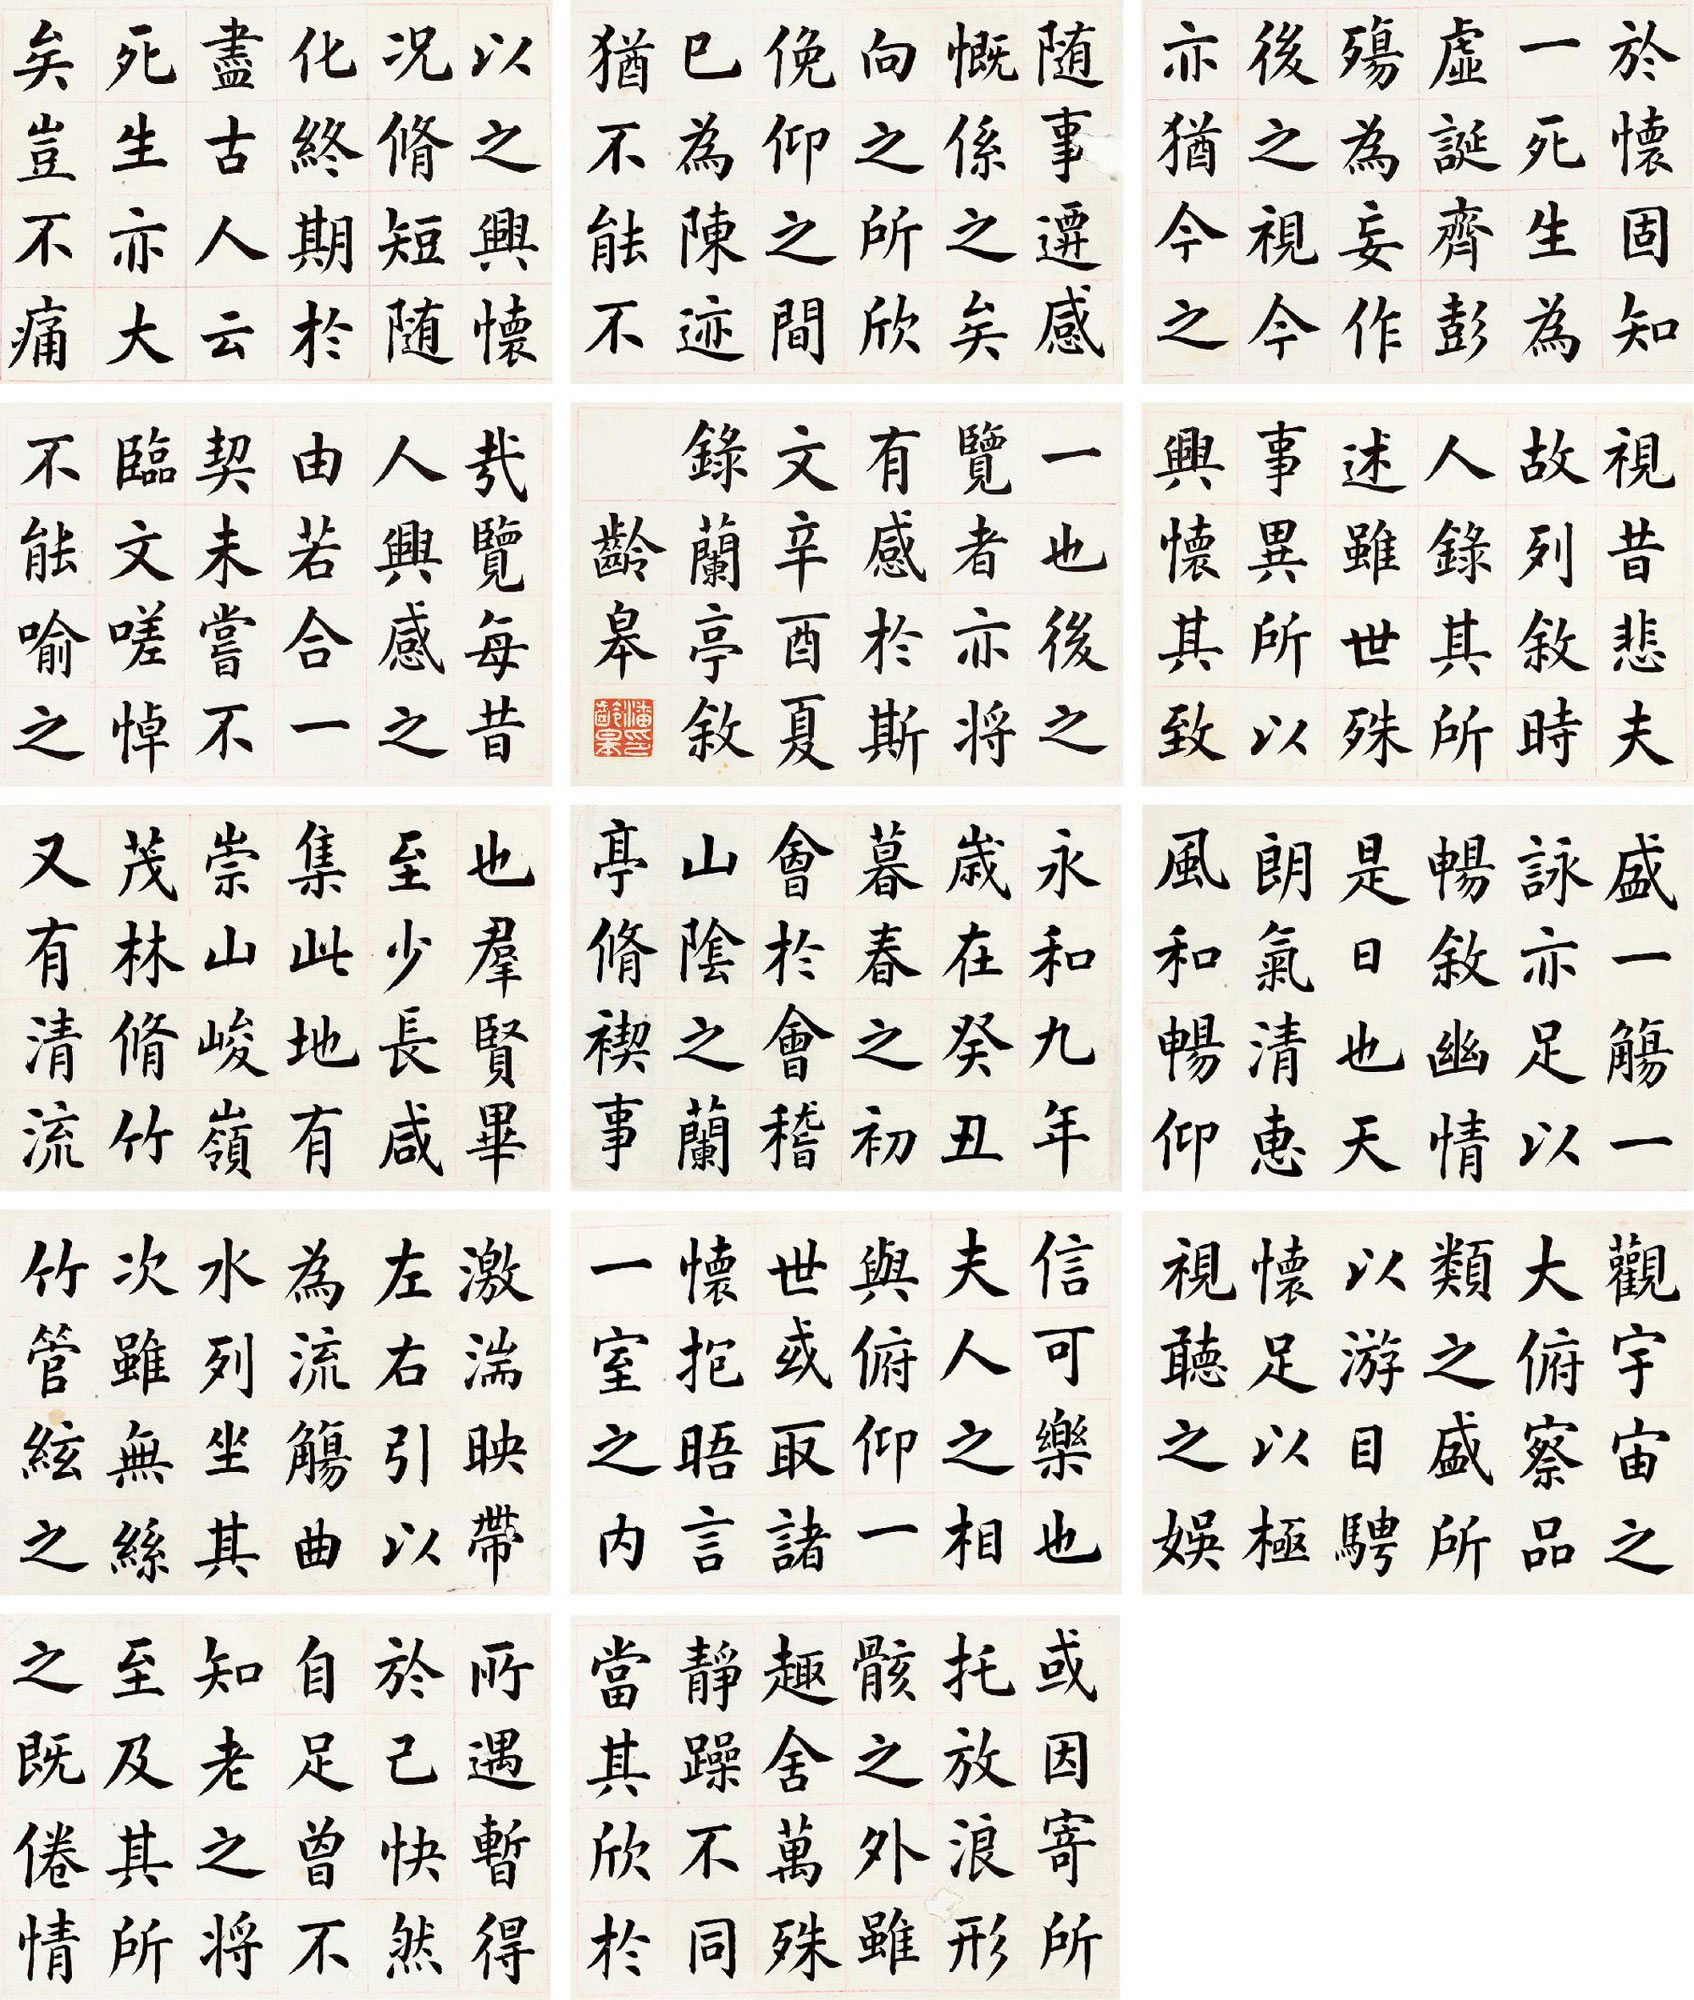 永和九年
歳在癸丑
暮春之初
會於會稽
山陰之蘭
亭脩禊事
也羣賢畢
至少長咸
集此地有
崇山峻嶺
茂林脩竹
又有清流
激湍映帶
左右引以
為流觴曲
水列坐其
次雖無絲
竹管絃之
盛一觴一
詠亦足以
暢敘幽情
是日也天
朗氣清惠
風和暢仰
觀宇宙之
大俯察品
類之盛所
以游目騁
懷足以極
視聽之娛
信可樂也
夫人之相
與俯仰一
世或取諸
懷抱晤言
一室之内
或因寄所
托放浪形
骸之外雖
趣舍萬殊
靜躁不同
當其欣於
所遇暫得
於己快然
自足曾不
知老之將
至及其所
之既倦情
随事遷感
慨係之矣
向之所欣
俛仰之間
已為陳迹
猶不能不
以之興懷
况脩短随
化終期於
盡古人云
死生亦大
矣豈不痛
哉覽每昔
人興感之
由若合一
契未嘗不
臨文嗟悼
不能喻之
於懷固知
一死生為
虛誕齊彭
殤為妄作
後之視今
亦猶今之
視昔悲夫
故列敘時
人錄其所
述雖世殊
事異所以
興懷其致
一也後之
覽者亦將
有感於斯
文辛酉夏
錄蘭亭敘
齡皋